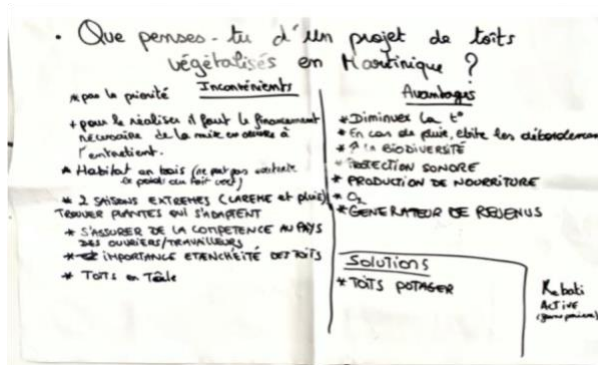 • Que penses-tu d'un projet de toîts
végétalisés en Martinique ?
Inconvénients
* pas la priorité
* pour le réaliser il faut le financement
nécessaire de la mise en œuvre à
l'entretient.
* Habitat en bois (ne peut pas
le poids du toit vert)
* 2 SAISONS EXTREMES (CAREME et pluie)
TROUVER PLANTES QUI S'ADAPTENT
* S'ASSURER DE LA COMPETENCE AU PAYS
DES OUVRIERS/TRAVAILLEURS
* IMPORTANCE ETANCHEITÉ DES TOITS
* TOITS en Tôle
Avantages
* Diminuer la t°
* En cas de pluie, evite les débordements
* ↗ la BIODIVERSITÉ
* PROTECTION SONORE
* PRODUCTION DE NOURRITURE
* O2
* GENERATEUR DE REVENUS
Solutions
* TOITS POTAGER
ACTIVE